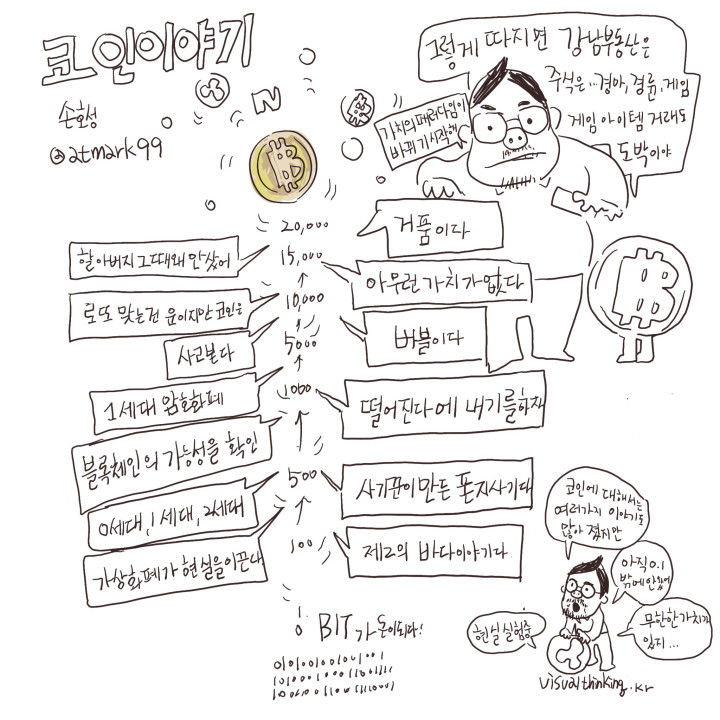 코인이야기
손호성
@atmark99
그렇게 따지면 강남부동산은
주식은...경마, 경륜, 게임
게임 아이템 거래도
도박이야
가치의 패러다임이
바뀌기시작해
20,000
15,000
10,000
5000
1000
500
100
0
할아버지 그때왜 안샀어
로또 맞는건 운이지만 코인은
사고본다
1세대 암호화폐
블록체인의 가능성을 확인
0세대, 1세대, 2세대
가상화폐가 현실을이끈다
거품이다
아무런 가치가없다
버블이다
떨어진다에 내기를하자
사기꾼이만든 폰지사기다
제2의 바다이야기다
BIT가 돈이되다!
코인에 대해서는
여러가지 이야기도
많아 졌지만
아직 0.1
밖에안왔어
무한한가치가
있지...
현실 실험중
visualthinking.kr